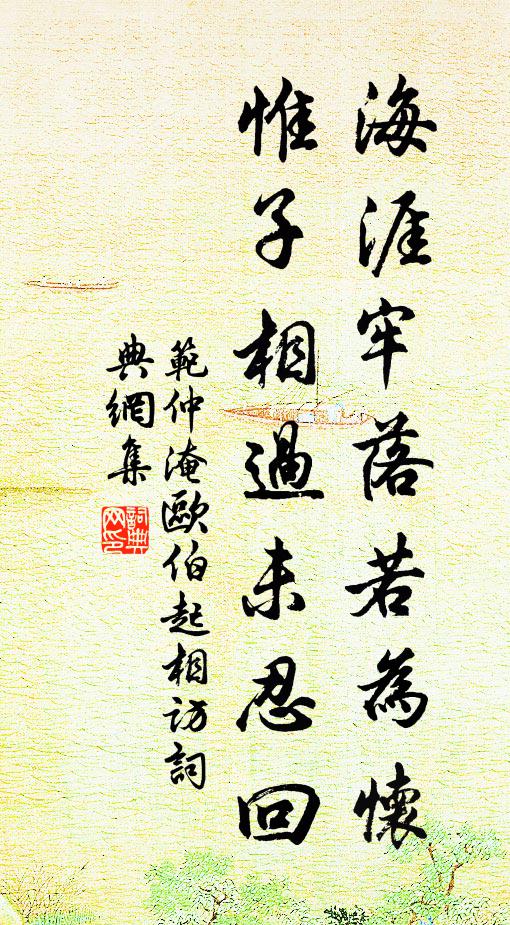 海涯牢落若為懷
惟子相過未忍回
範仲淹歐伯起相訪詞
典網集
詞典网印